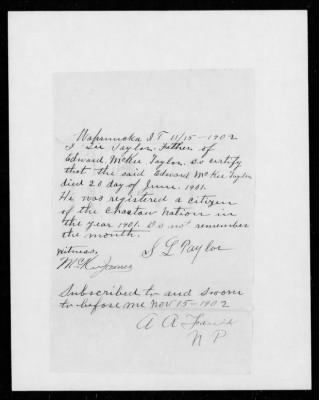 Wapanucka I T 11/15-1902
I Lee Taylor, Father of
Edward, McKee, Taylor, do certify
that the said Edward McKee Taylor
died 20 day of June. 1901.
He was registered a citizen
of the Choctaw Nation in
the year 1901. Do not remember
the month.
witness, S L Taylor
McKee James
Subscribed to and sworn
to before me Nov 15-1902
A A
N P